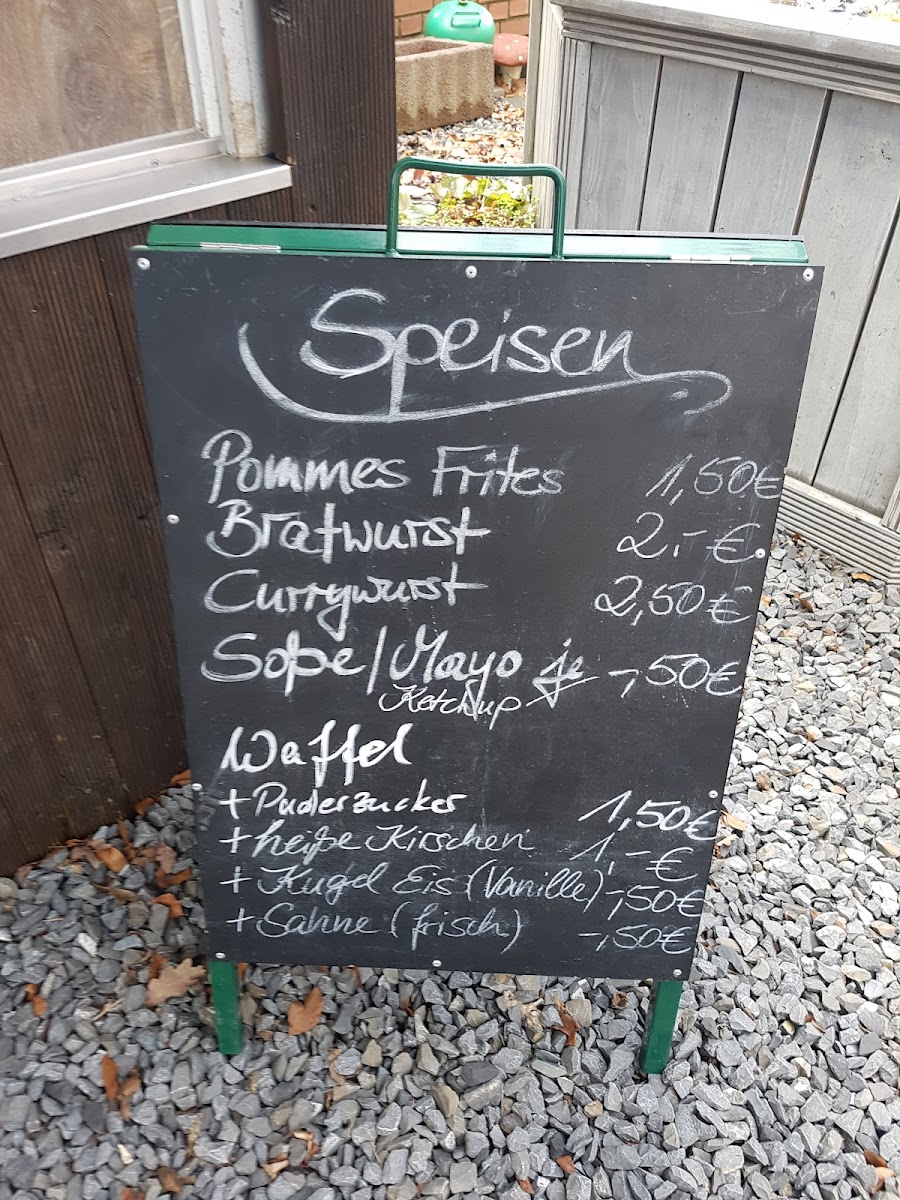 Speisen
Pommes Frites 1,50€
Bratwurst 2,-€
Currywurst 2,50€
Soße/Mayo je -,50€
Ketchup
Waffel
+ Puderzucker 1,50€
+ heiße Kirschen 1,-€
+ Kugel Eis (Vanille) -,50€
+ Sahne (frisch) -,50€